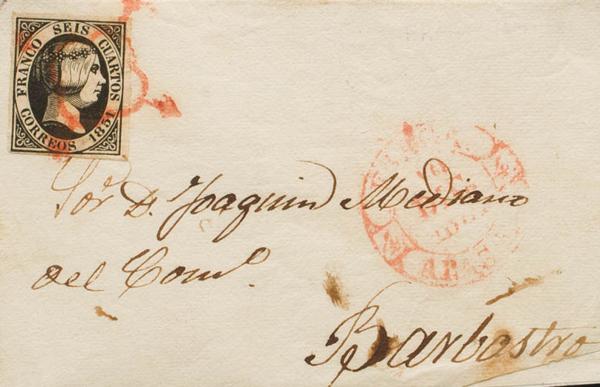 FRANCO SEIS CUARTOS
CORREOS 1851
Sor. D. Joaquin Mediano
del Comº.
Barbastro